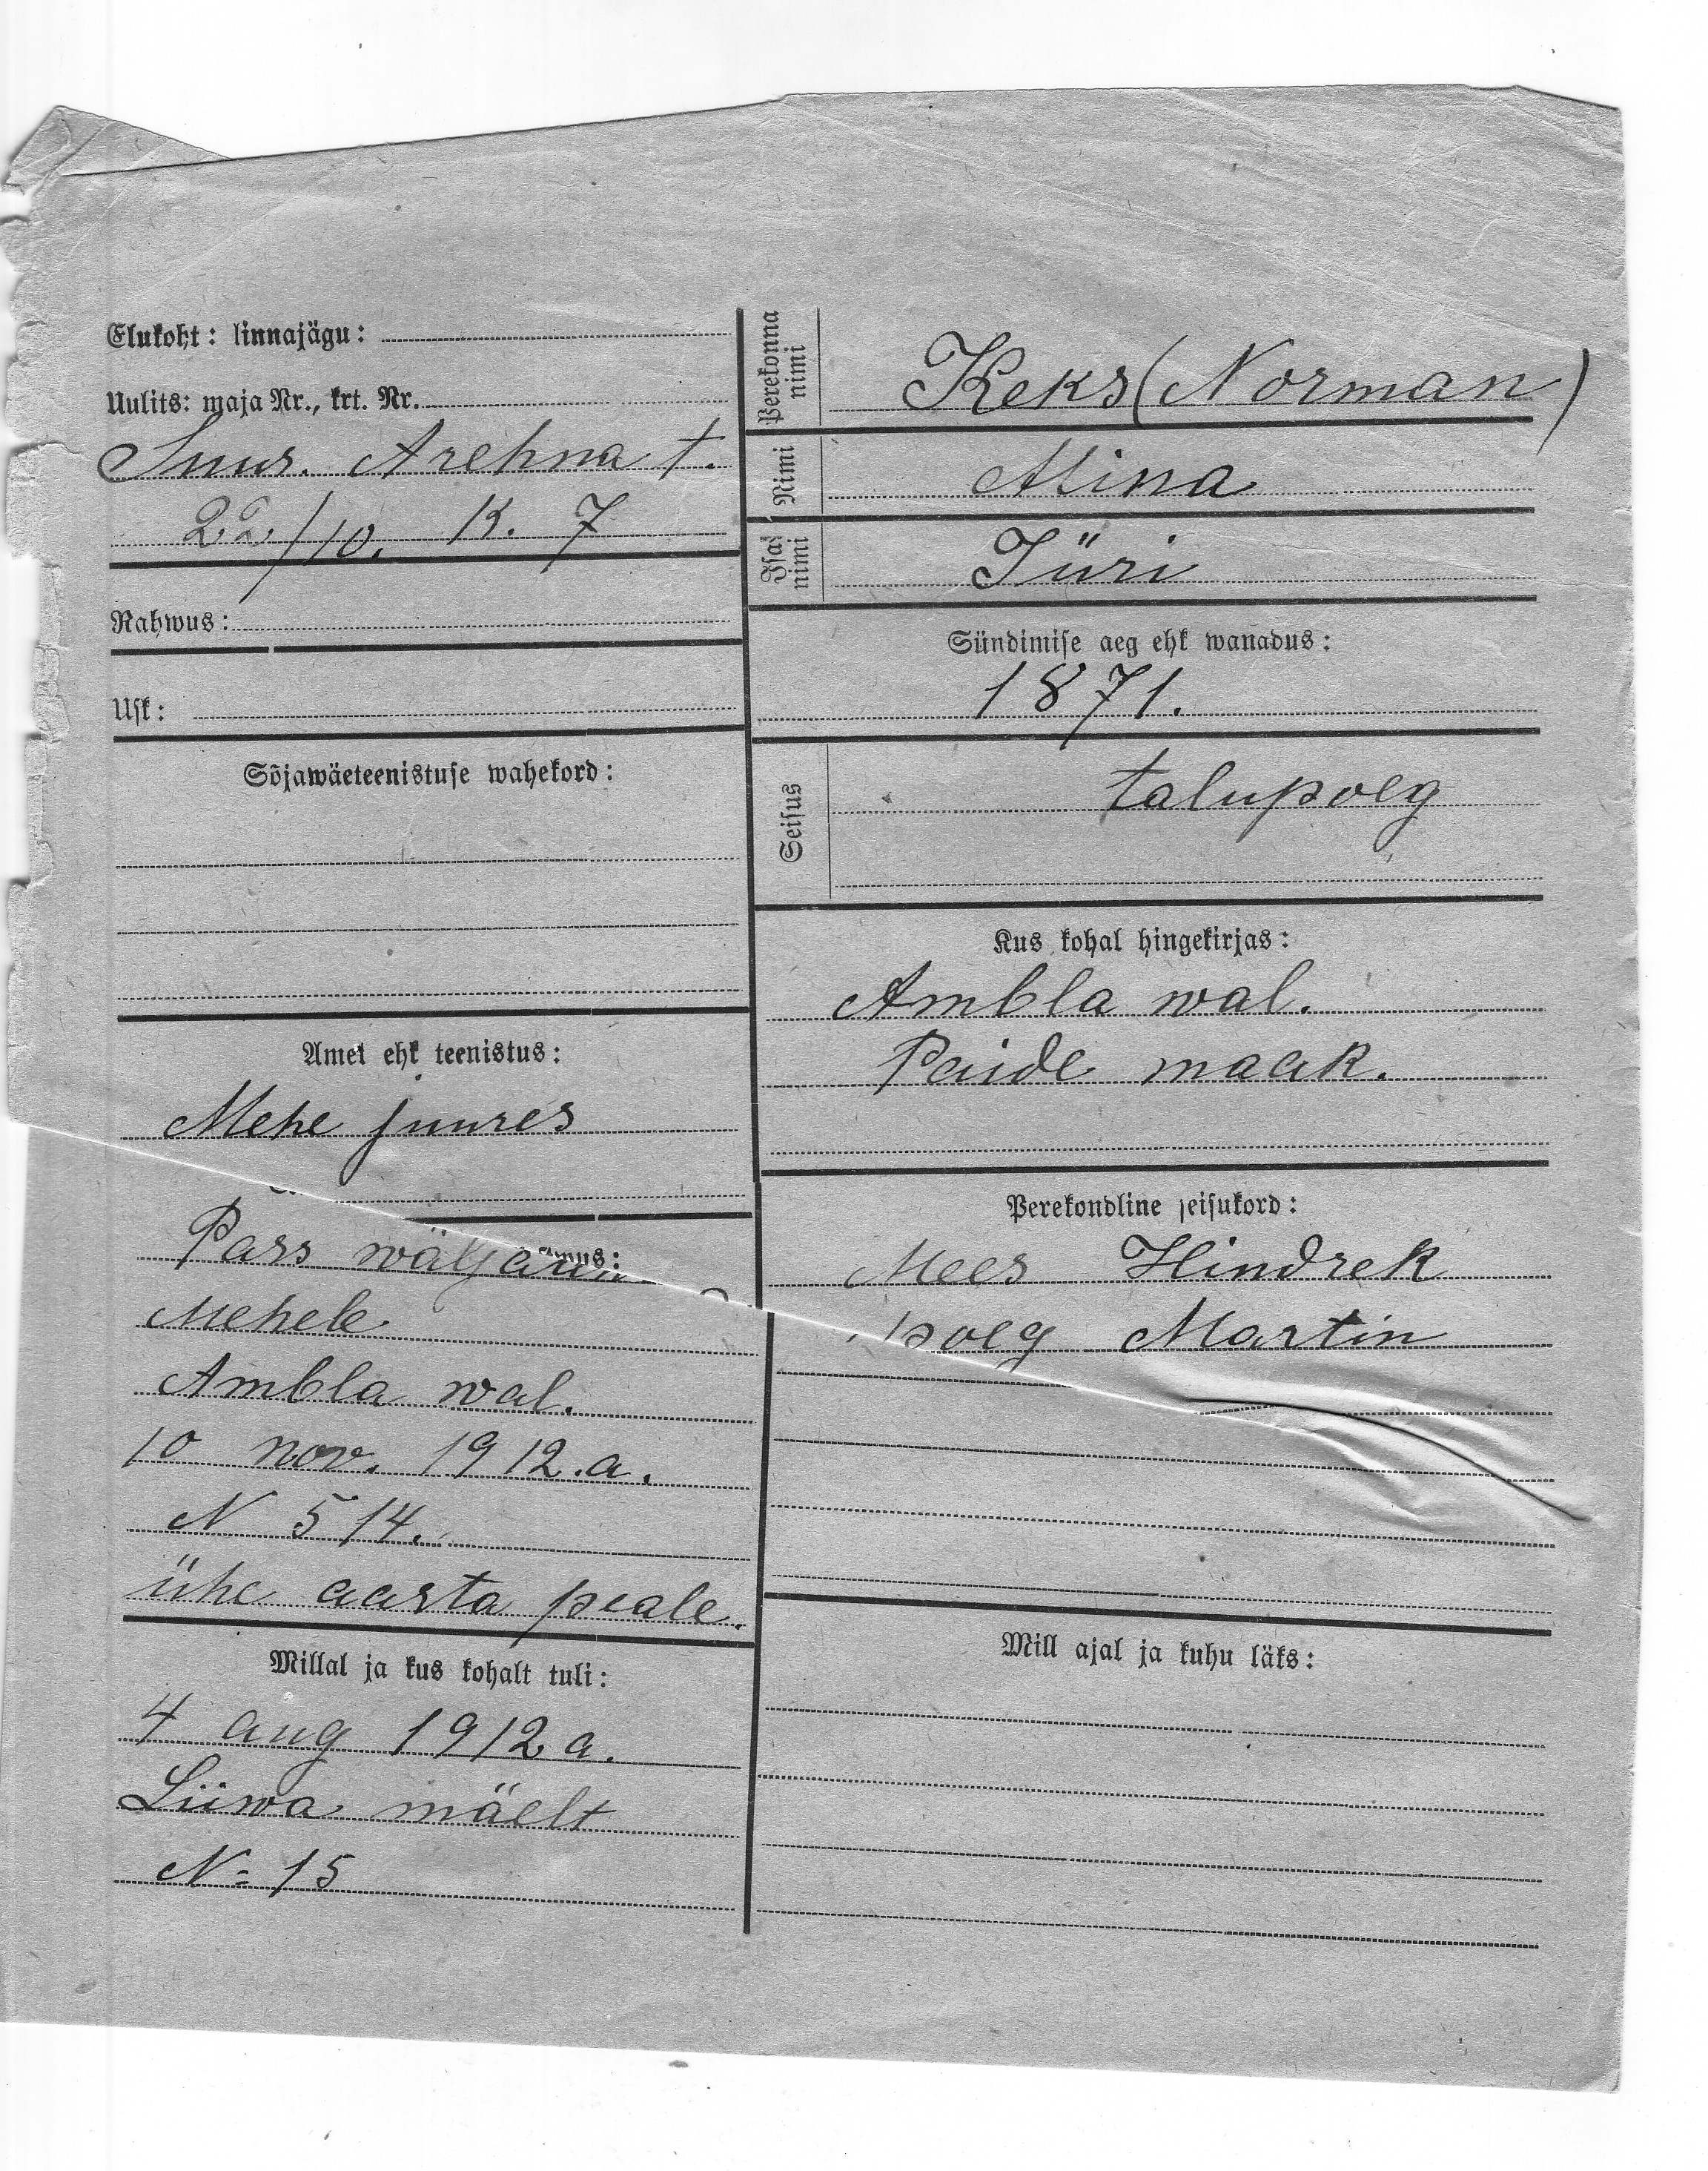 Elukoht: linnajägu:
Uulits: maja Nr., krt. Nr.
Suur. Arehna t.
22/10. K. 7
Rahwus:
Usk:
Sõjawäeteenistuse wahekord:
Amet ehk teenistus:
Mehe juures
Pass wäljaan
Mehele
Ambla wal.
10 nov. 1912.a.
N 514.
ühe aasta peale.
Millal ja kus kohalt tuli:
4 aug 1912 a.
Liiwa mäelt
N= 15
Perekonna nimi
Keks (Norman)
Nimi
Mina
Isa nimi
Jüri
Sündimise aeg ehk wanadus:
1871.
Seisus
talupoeg
Kus kohal hingekirjas:
Ambla wal.
Paide maak.
Perekondline seisukord:
Mees Hindrek
poeg Martin
Mill ajal ja kuhu läks: